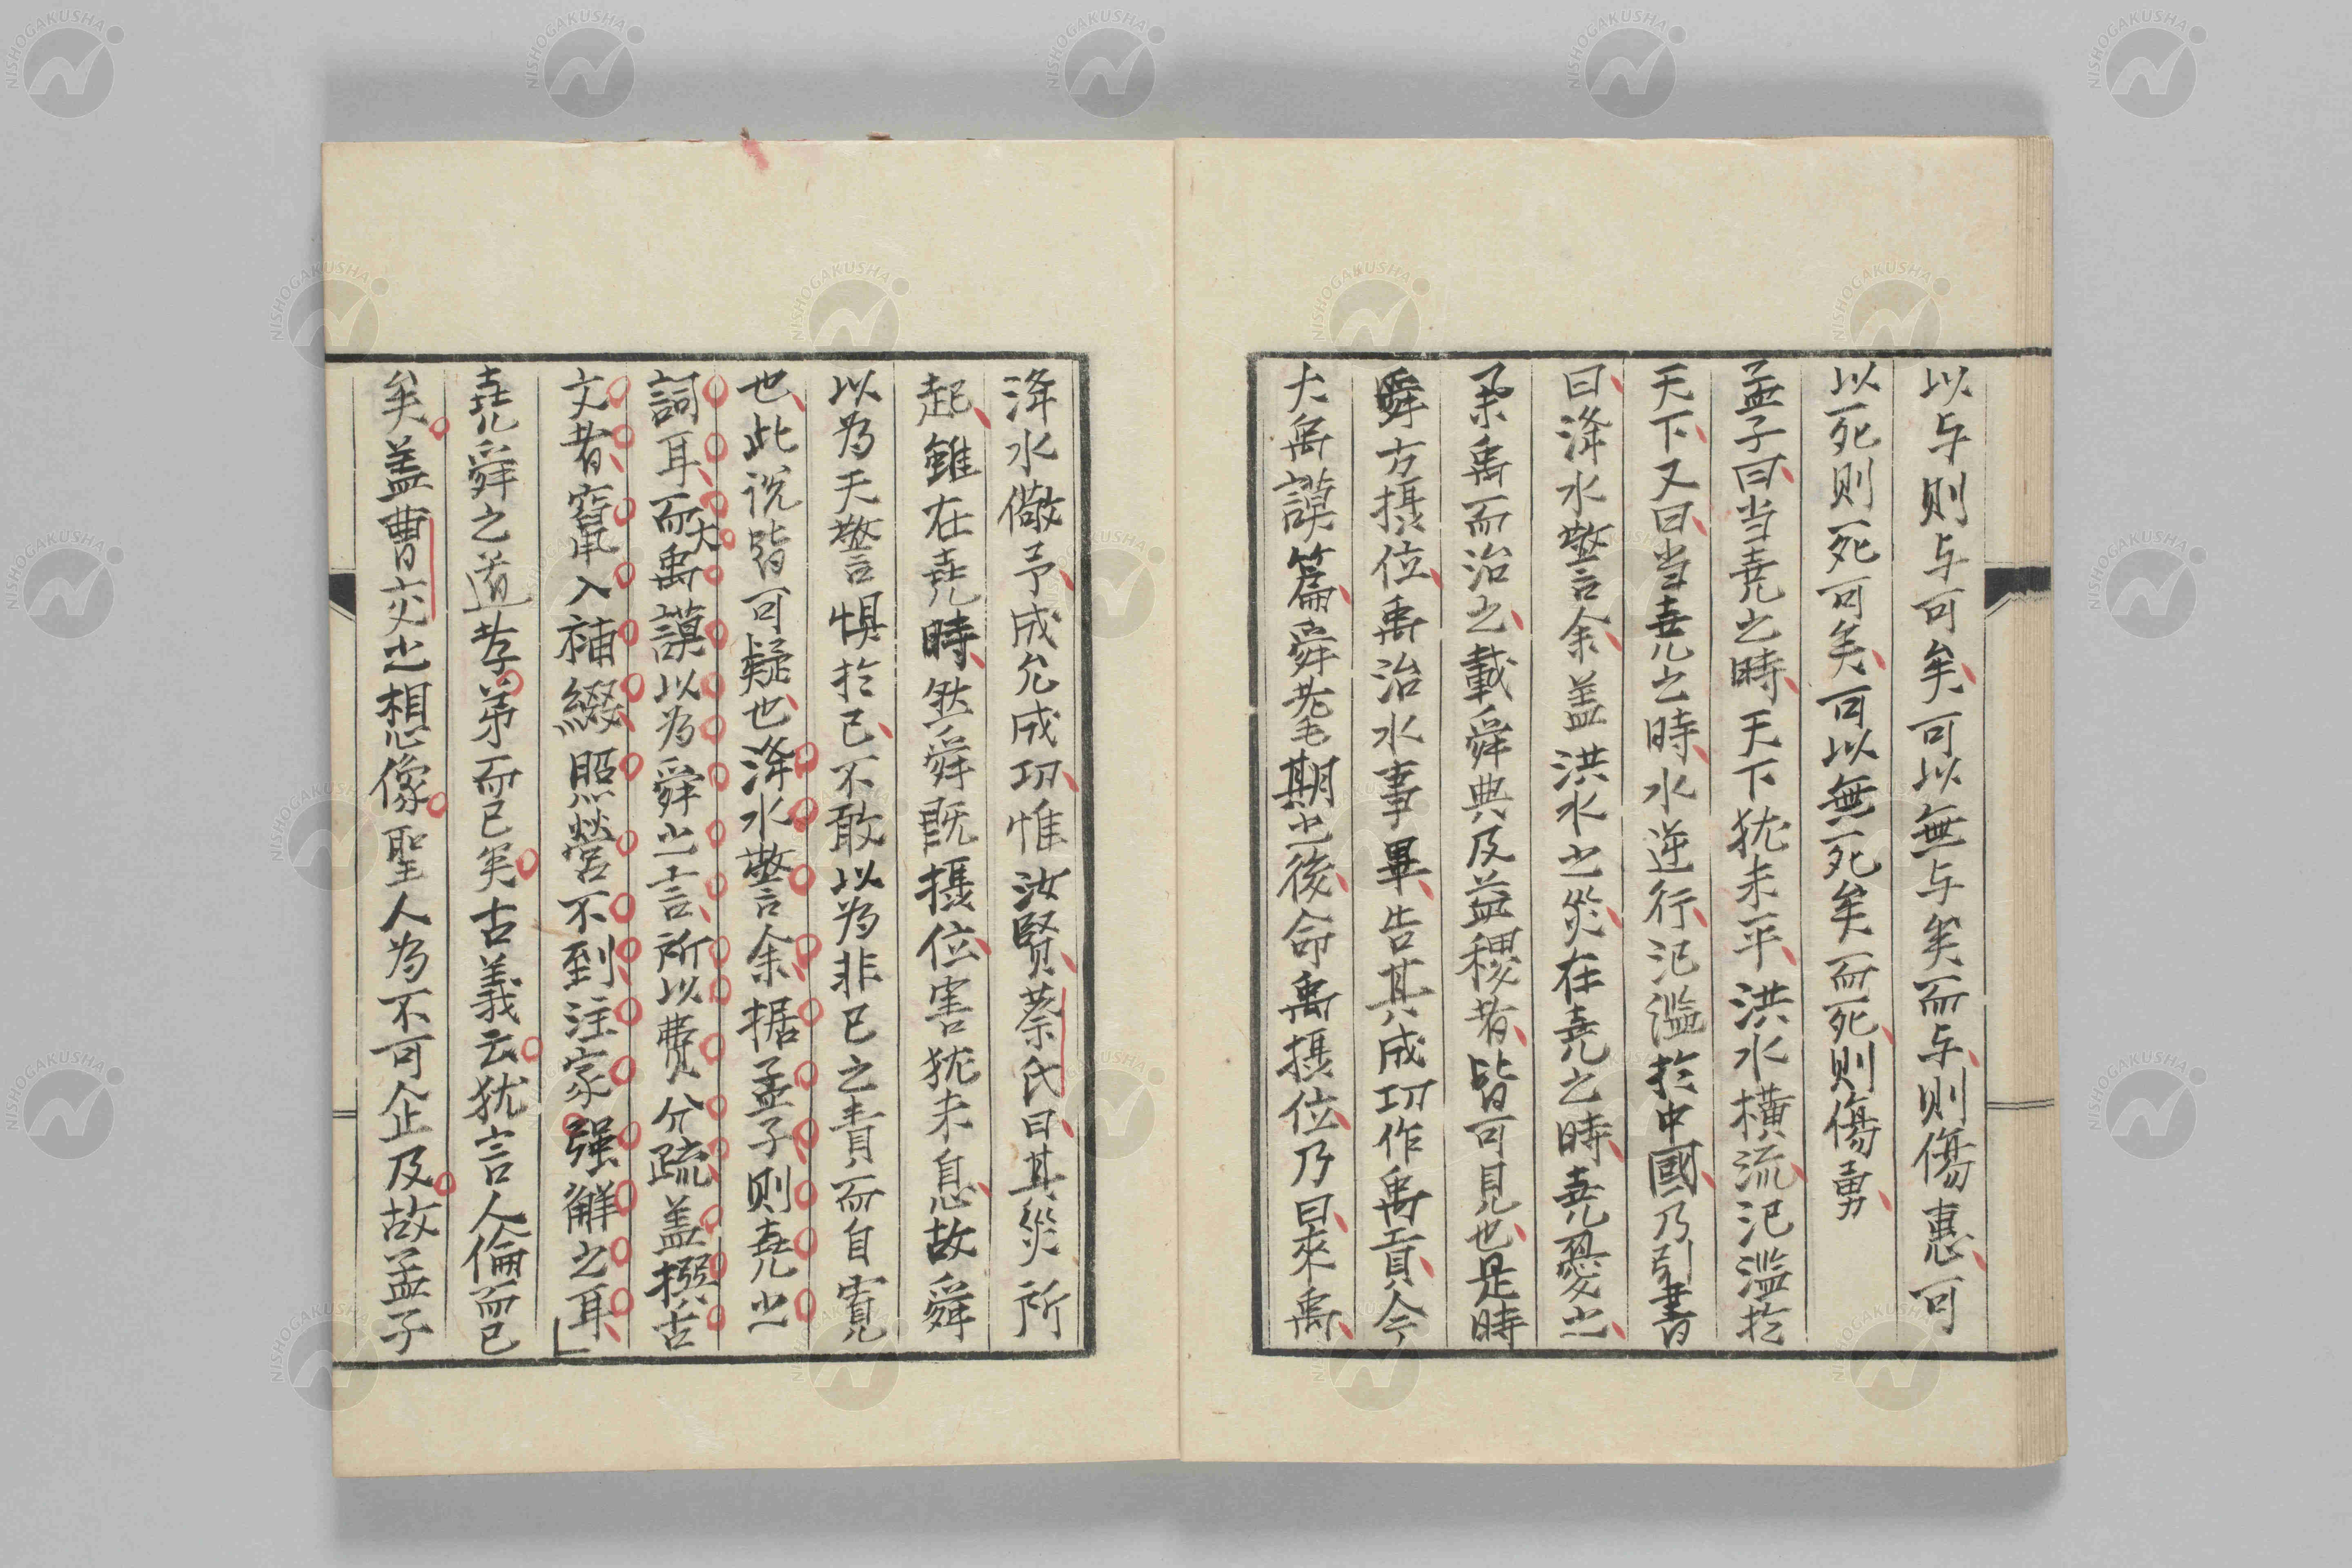 以与則与可矣可以無与矣而与則傷惠可
以死則死可矣可以無死矣而死則傷勇
孟子曰当堯之時天下犹未平洪水横流氾濫於
天下又曰当堯之時水逆行氾濫於中國乃引書
曰洚水警余盖洪水之災在堯之時堯憂之
禹而治之載舜典及益稷者皆可見也是時
舜方摂位禹治水事畢告其成功作禹貢今
大禹謨篇舜耄期之後命禹摂位乃曰來禹
洚水儆予成允成功惟汝賢蔡氏曰其災所
起雖在堯時然舜既摂位害犹未息故舜
以为天警惧於己不敢以为非己之責而自寛
也此説皆可疑也洚水警余据孟子則堯之
詞耳而大禹謨以为舜之言所以費分疏盖撥古
文者竄入補綴照営不到注家强觧之耳
堯舜之道孝弟而已矣古義云犹言人倫而已
矣盖曹交之想像聖人为不可企及故孟子
NISHOGAKUSHA